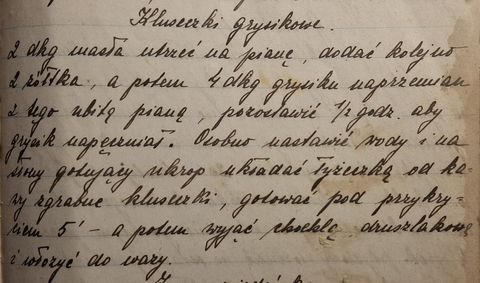 Kluseczki grysikowe.
2 dkg masła utrzeć na pianę, dodać kolejno
2 żółtka, a potem 4 dkg grysiku naprzemian
z tego ubitą pianą, pozostawić 1/2 godz. aby
grysik napęczniał. Osobno nastawić wody i na
silny gotujący ukrop układać łyżeczką od ka-
wy zgrabne kluseczki, gotować pod przykry-
ciem 5' - a potem wyjąć chochlą druszlakową
i włożyć do wazy.